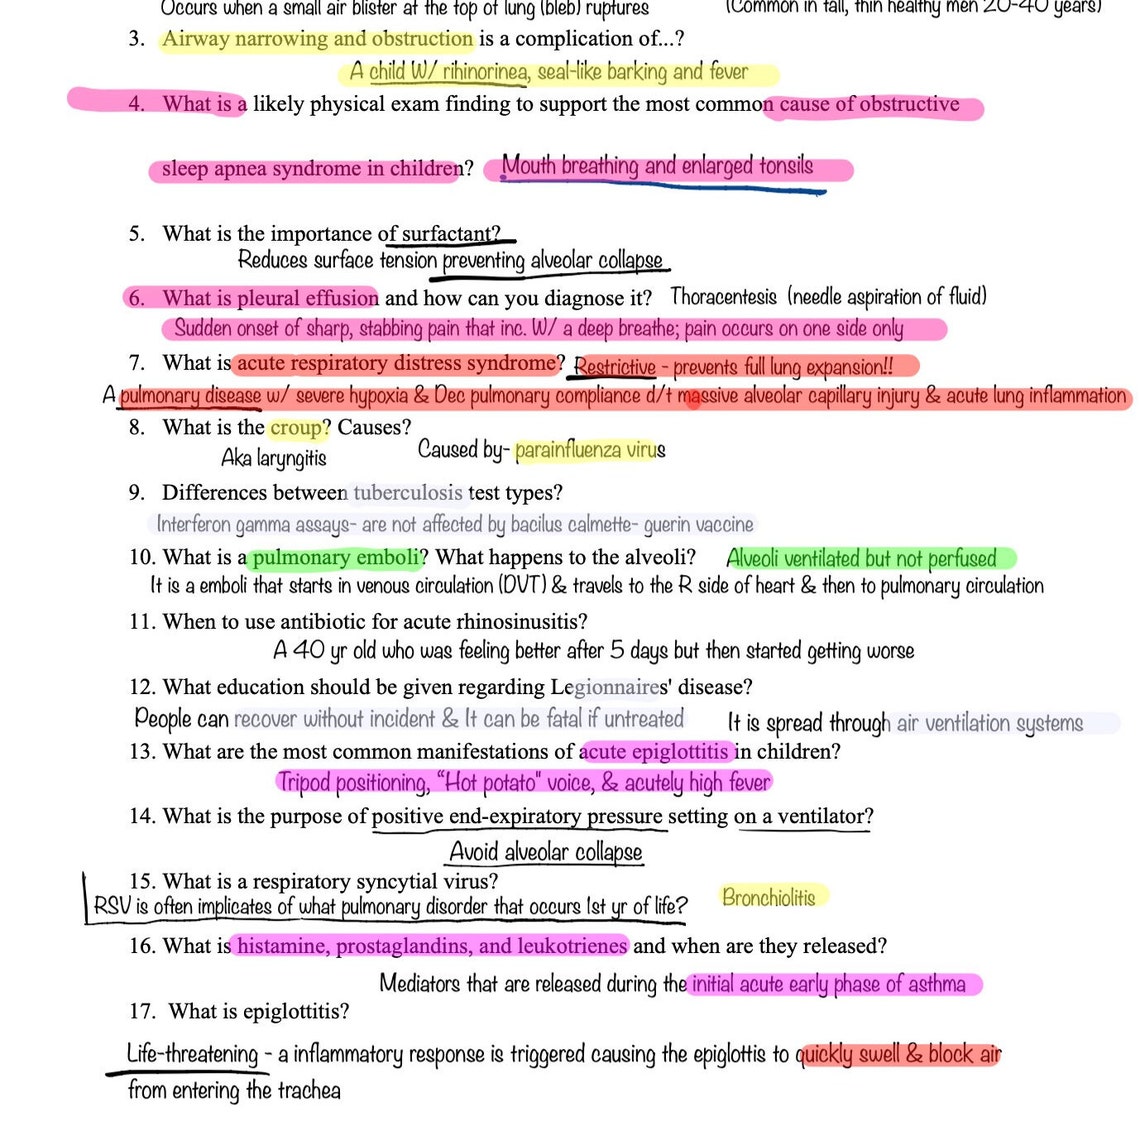 Occurs when a small air blister at the top of lung (bleb) ruptures (Common in tall, thin healthy men 20-40 years)
3. Airway narrowing and obstruction is a complication of...?
A child W/ rihinorinea, seal-like barking and fever
4. What is a likely physical exam finding to support the most common cause of obstructive
sleep apnea syndrome in children? Mouth breathing and enlarged tonsils
5. What is the importance of surfactant?
Reduces surface tension preventing alveolar collapse
6. What is pleural effusion and how can you diagnose it? Thoracentesis (needle aspiration of fluid)
Sudden onset of sharp, stabbing pain that inc. W/ a deep breathe; pain occurs on one side only
7. What is acute respiratory distress syndrome? Restrictive - prevents full lung expansion!!
A pulmonary disease w/ severe hypoxia & Dec pulmonary compliance d/t massive alveolar capillary injury & acute lung inflammation
8. What is the croup? Causes?
Aka laryngitis Caused by- parainfluenza virus
9. Differences between tuberculosis test types?
Interferon gamma assays- are not affected by bacilus calmette- guerin vaccine
10. What is a pulmonary emboli? What happens to the alveoli? Alveoli ventilated but not perfused
It is a emboli that starts in venous circulation (DVT) & travels to the R side of heart & then to pulmonary circulation
11. When to use antibiotic for acute rhinosinusitis?
A 40 yr old who was feeling better after 5 days but then started getting worse
12. What education should be given regarding Legionnaires' disease?
People can recover without incident & It can be fatal if untreated It is spread through air ventilation systems
13. What are the most common manifestations of acute epiglottitis in children?
Tripod positioning, "Hot potato" voice, & acutely high fever
14. What is the purpose of positive end-expiratory pressure setting on a ventilator?
Avoid alveolar collapse
15. What is a respiratory syncytial virus?
RSV is often implicates of what pulmonary disorder that occurs 1st yr of life? Bronchiolitis
16. What is histamine, prostaglandins, and leukotrienes and when are they released?
Mediators that are released during the initial acute early phase of asthma
17. What is epiglottitis?
Life-threatening - a inflammatory response is triggered causing the epiglottis to quickly swell & block air
from entering the trachea